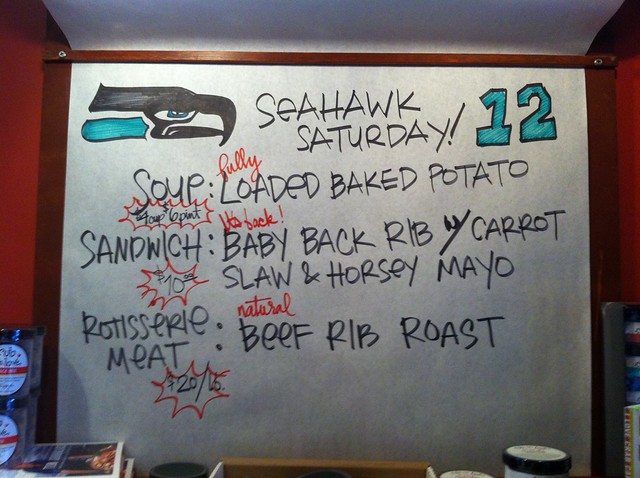 SEAHAWK
SATURDAY!
12
fully
SOUP: LOADED BAKED POTATO
$4 cup $6 pint
It's back!
SANDWICH: BABY BACK RIB w/ CARROT
$10.00 SLAW & HORSEY MAYO
natural
ROTISSERIE MEAT : BEEF RIB ROAST
$20/lb.